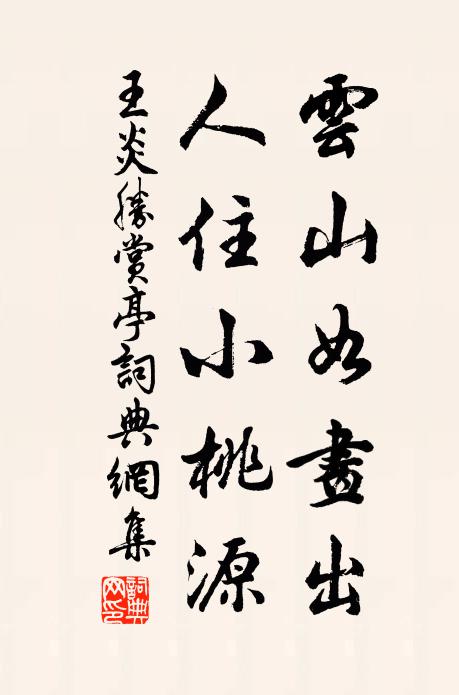 雲山如畫出
人住小桃源
王炎勝賞亭詞典網集
詞典網印